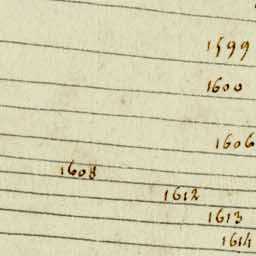 1599
1600
1606
1608
1612
1613
1614